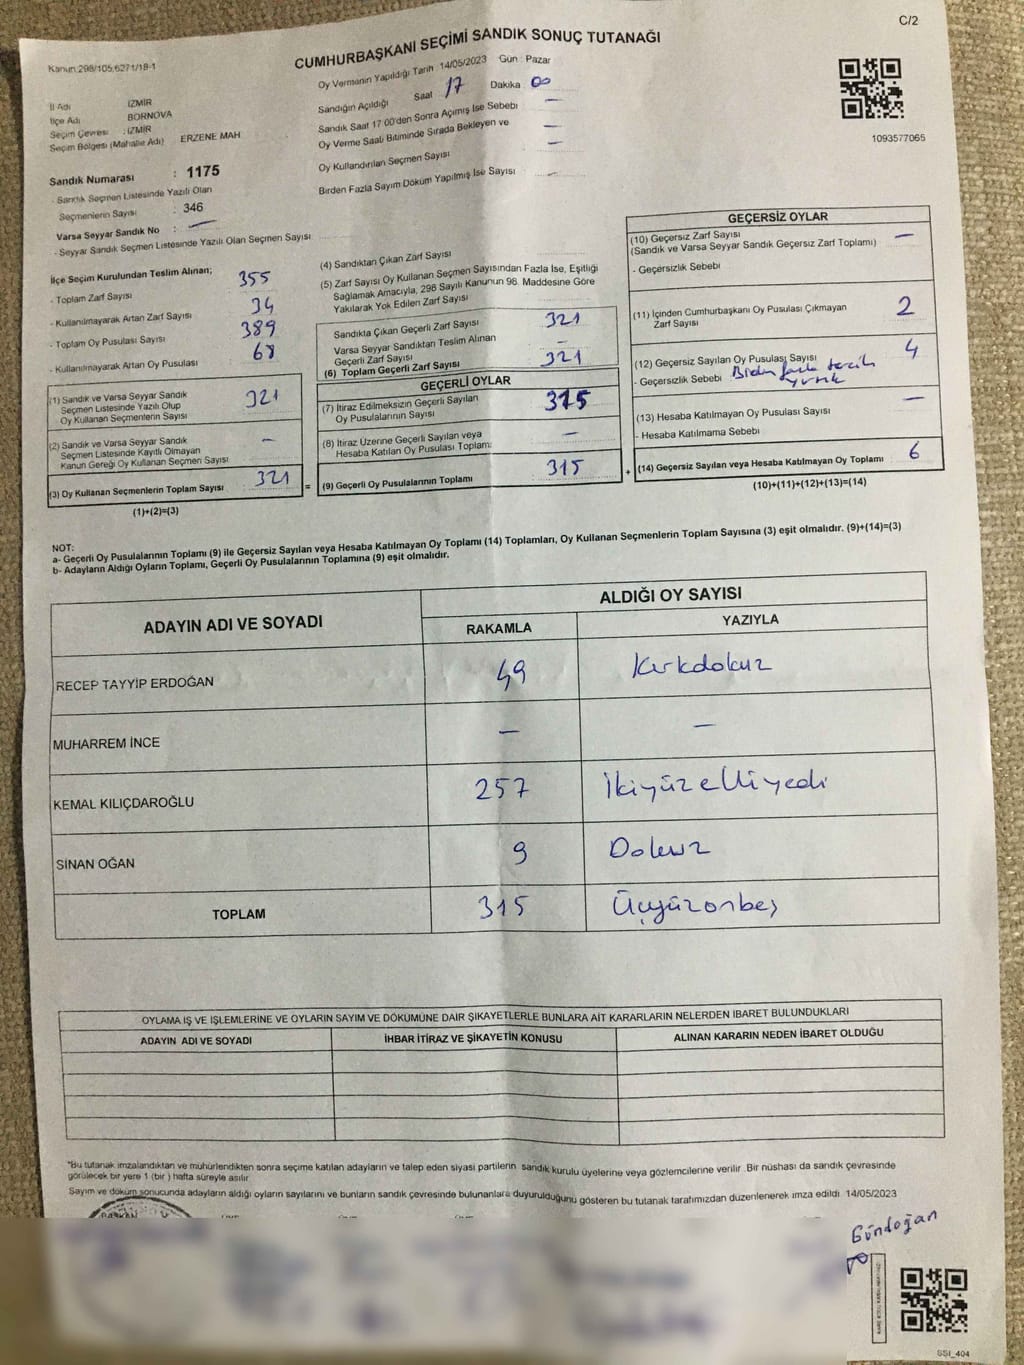 C/2
Kanun:298/105,6271/18-1
CUMHURBAŞKANI SEÇİMİ SANDIK SONUÇ TUTANAĞI
Oy Vermenin Yapıldığı Tarih 14/05/2023 Gün : Pazar
Sandığın Açıldığı Saat 17 Dakika 00
Sandık Saat 17:00'den Sonra Açılmış İse Sebebi —
Oy Verme Saati Bitiminde Sırada Bekleyen ve —
Oy Kullandırılan Seçmen Sayısı —
Birden Fazla Sayım Döküm Yapılmış İse Sayısı —
1093577065
İl Adı : İZMİR
İlçe Adı : BORNOVA
Seçim Çevresi : İZMİR
Seçim Bölgesi (Mahalle Adı) ERZENE MAH
Sandık Numarası : 1175
- Sandık Seçmen Listesinde Yazılı Olan
Seçmenlerin Sayısı : 346
Varsa Seyyar Sandık No : —
- Seyyar Sandık Seçmen Listesinde Yazılı Olan Seçmen Sayısı
İlçe Seçim Kurulundan Teslim Alınan;
- Toplam Zarf Sayısı 355
- Kullanılmayarak Artan Zarf Sayısı 34
- Toplam Oy Pusulası Sayısı 389
- Kullanılmayarak Artan Oy Pusulası 68
(1) Sandık ve Varsa Seyyar Sandık
Seçmen Listesinde Yazılı Olup
Oy Kullanan Seçmenlerin Sayısı 321
(2) Sandık ve Varsa Seyyar Sandık
Seçmen Listesinde Kayıtlı Olmayan
Kanun Gereği Oy Kullanan Seçmen Sayısı —
(3) Oy Kullanan Seçmenlerin Toplam Sayısı 321 =
(1)+(2)=(3)
(4) Sandıktan Çıkan Zarf Sayısı
(5) Zarf Sayısı Oy Kullanan Seçmen Sayısından Fazla İse, Eşitliği
Sağlamak Amacıyla, 298 Sayılı Kanunun 98. Maddesine Göre
Yakılarak Yok Edilen Zarf Sayısı
Sandıkta Çıkan Geçerli Zarf Sayısı 321
Varsa Seyyar Sandıktan Teslim Alınan
Geçerli Zarf Sayısı —
(6) Toplam Geçerli Zarf Sayısı 321
GEÇERLİ OYLAR
(7) İtiraz Edilmeksizin Geçerli Sayılan
Oy Pusulasının Sayısı 315
(8) İtiraz Üzerine Geçerli Sayılan veya
Hesaba Katılan Oy Pusulası Toplamı —
(9) Geçerli Oy Pusulalarının Toplamı 315 +
GEÇERSİZ OYLAR
(10) Geçersiz Zarf Sayısı —
(Sandık ve Varsa Seyyar Sandık Geçersiz Zarf Toplamı)
- Geçersizlik Sebebi
(11) İçinden Cumhurbaşkanı Oy Pusulası Çıkmayan
Zarf Sayısı 2
(12) Geçersiz Sayılan Oy Pusulası Sayısı 4
- Geçersizlik Sebebi Birden fazla tercih
(13) Hesaba Katılmayan Oy Pusulası Sayısı —
- Hesaba Katılmama Sebebi
(14) Geçersiz Sayılan veya Hesaba Katılmayan Oy Toplamı 6
(10)+(11)+(12)+(13)=(14)
NOT:
a- Geçerli Oy Pusulalarının Toplamı (9) ile Geçersiz Sayılan veya Hesaba Katılmayan Oy Toplamı (14) Toplamları, Oy Kullanan Seçmenlerin Toplam Sayısına (3) eşit olmalıdır. (9)+(14)=(3)
b- Adayların Aldığı Oyların Toplamı, Geçerli Oy Pusulalarının Toplamına (9) eşit olmalıdır.
ADAYIN ADI VE SOYADI
ALDIĞI OY SAYISI
RAKAMLA YAZIYLA
RECEP TAYYİP ERDOĞAN 49 Kırkdokuz
MUHARREM İNCE — —
KEMAL KILIÇDAROĞLU 257 İkiyüzelliyedi
SİNAN OĞAN 9 Dokuz
TOPLAM 315 Üçyüzonbeş
OYLAMA İŞ VE İŞLEMLERİNE VE OYLARIN SAYIM VE DÖKÜMÜNE DAİR ŞİKAYETLERLE BUNLARA AİT KARARLARIN NELERDEN İBARET BULUNDUKLARI
ADAYIN ADI VE SOYADI İHBAR İTİRAZ VE ŞİKAYETİN KONUSU ALINAN KARARIN NEDEN İBARET OLDUĞU
*Bu tutanak imzalandıktan ve mühürlendikten sonra seçime katılan adayların ve talep eden siyasi partilerin sandık kurulu üyelerine veya gözlemcilerine verilir. Bir nüshası da sandık çevresinde
görülecek bir yere 1 (bir ) hafta süreyle asılır
Sayım ve döküm sonucunda adayların aldığı oyların sayılarını ve bunların sandık çevresinde bulunanlara duyurulduğunu gösteren bu tutanak tarafımızdan düzenlenerek imza edildi. 14/05/2023
BAŞKAN
Gündoğan
SSI_404